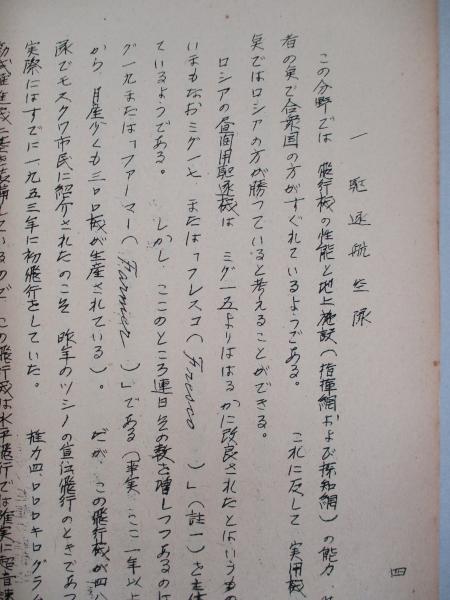 一 駆逐航空隊
この分野では 飛行機の性能と地上施設(指揮網および探知網)の能力
者の点で合衆国の方がすぐれているようである。 これに反して 実用機
点ではロシアの方が勝つていると考えることができる。
ロシアの昼間用駆逐機は ミグ一五よりはるかに改良されたとはいうもの
いまもなおミグ一七 または「フレスコ(Fresco )」(註一)を主体
ているようである。 しかし、ここのところ連日その数を増しつつあるのは
グ一九または「ファーマー(Farmier )」である(事実 ここ一年以上
から、月産少くも三〇〇機が生産されている)。 だが、この飛行機が四八
隊でモスクワ市民に紹介されたのこそ 昨年のツシノの宣伝飛行のときであつ
実際にはすでに一九五三年に初飛行をしていた。 推力四〇〇〇キログラム
ているので この飛行機は水平飛行では確実に超音速
四